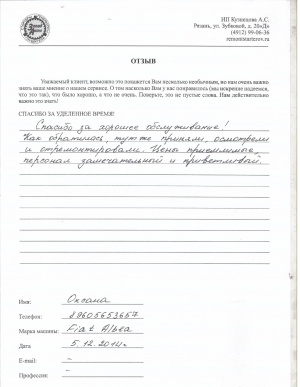 ИП Кузнецова А.С.
Рязань, ул. Зубковой, д. 20«Д»
(4912) 99-06-36
ОТЗЫВ
Уважаемый клиент, возможно это покажется Вам несколько необычным, но нам очень важно
знать ваше мнение о нашем сервисе. О том насколько Вам у нас понравилось (мы искренне надеемся,
что это так), что было хорошо, а что не очень. Поверьте, это не пустые слова. Нам действительно
важно это знать!
СПАСИБО ЗА УДЕЛЕННОЕ ВРЕМЯ!
Спасибо за хорошее обслуживание!
Как обратилась, тут же приняли, осмотрели
и отремонтировали. Цены приемлимые,
персонал замечательный и приветливый.
Имя: Оксана
Телефон: 89605653657
Марка машины: Fiat Albea
Дата 5.12.2014г.
E-mail: –
Профессия: –